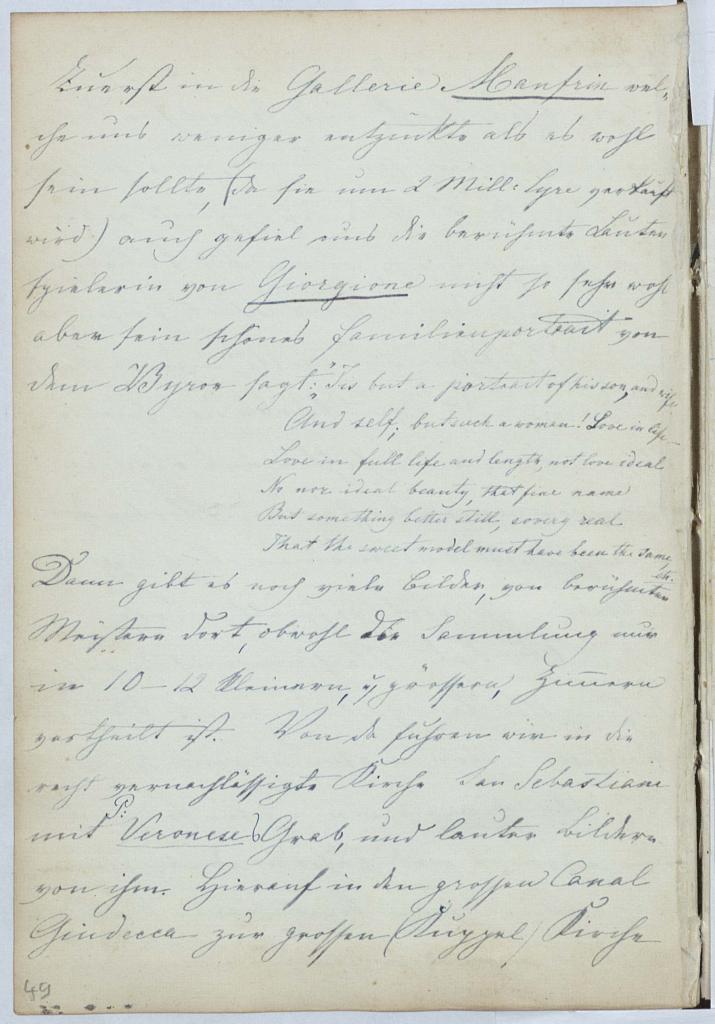 Zuerst in die Gallerie Manfrin wel-
che uns weniger entzückte als es wohl
sein sollte, (da sie um 2 Mill: Lyre verkauft
wird) auch gefiel uns die berühmte Lauten
spielerin von Giorgione nicht so sehr wohl
aber sein schönes Familienportrait von
dem Byron sagt: "Tis but a portrait of his son, and wife
And self; but such a woman! Love in life
Love in full life and length, not love ideal
No nor ideal beauty, that fine name
But something better still, so very real
That the sweet model must have been the same, etc.
Dann gibt es noch viele Bilder, von berühmten
Meistern dort, obwohl die Sammlung nur
in 10-12 kleinern, u, grössern, Zimmern
vertheilt ist. Von da fuhren wir in die
recht vernachlässigte Kirche San Sebastiano
mit P: Veroneses Grab, und lauter Bildern
von ihm. Hierauf in den grossen Canal
Giudecca zur grossen (Kuppel) Kirche
49